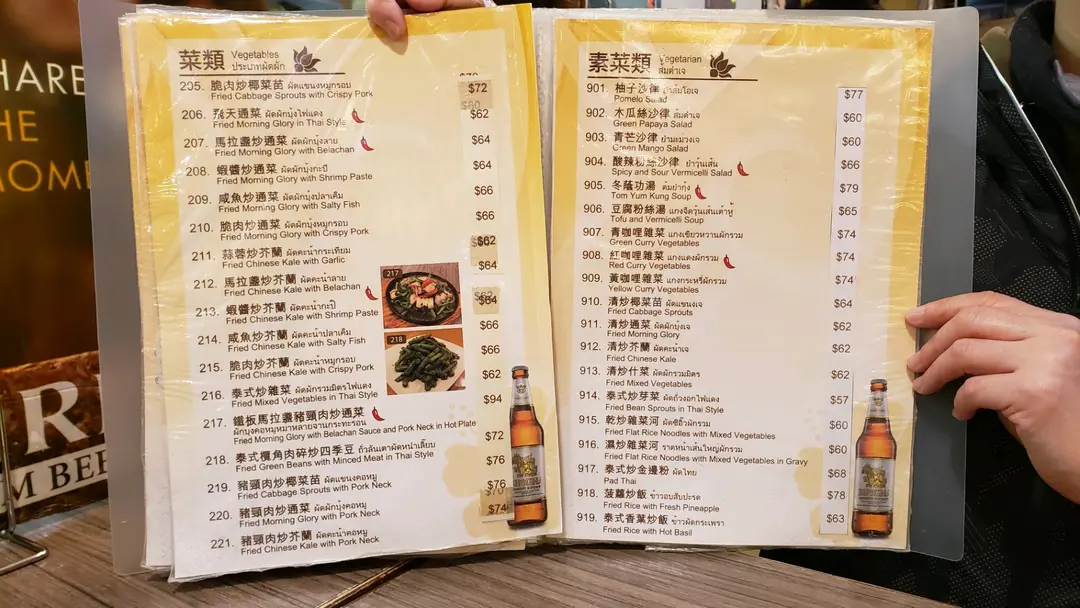 HARE
HE
OME
R
M BEE
菜類 Vegetables
ประเภทผัดผัก
205. 脆肉炒椰菜苗 ผัดแขนงหมูกรอบ $72
Fried Cabbage Sprouts with Crispy Pork
206. 飛天通菜 ผัดผักบุ้งไฟแดง $62
Fried Morning Glory in Thai Style
207. 馬拉盞炒通菜 ผัดผักบุ้งลาย $64
Fried Morning Glory with Belachan
208. 蝦醬炒通菜 ผัดผักบุ้งกะปิ $64
Fried Morning Glory with Shrimp Paste
209. 咸魚炒通菜 ผัดผักบุ้งปลาเค็ม $66
Fried Morning Glory with Salty Fish
210. 脆肉炒通菜 ผัดผักบุ้งหมูกรอบ $66
Fried Morning Glory with Crispy Pork
211. 蒜蓉炒芥蘭 ผัดคะน้ากระเทียม $62
Fried Chinese Kale with Garlic
212. 馬拉盞炒芥蘭 ผัดคะน้าลาย $64
Fried Chinese Kale with Belachan
213. 蝦醬炒芥蘭 ผัดคะน้ากะปิ $64
Fried Chinese Kale with Shrimp Paste
214. 咸魚炒芥蘭 ผัดคะน้าปลาเค็ม $66
Fried Chinese Kale with Salty Fish
215. 脆肉炒芥蘭 ผัดคะน้าหมูกรอบ $66
Fried Chinese Kale with Crispy Pork
216. 泰式炒雜菜 ผัดผักรวมมิตรไฟแดง $62
Fried Mixed Vegetables in Thai Style
217. 鐵板馬拉盞豬頸肉炒通菜 $94
ผักบุ้งคอหมูหมาหลายจานกระทะร้อน
Fried Morning Glory with Belachan Sauce and Pork Neck in Hot Plate
218. 泰式欖角肉碎炒四季豆 ถั่วลันเตาผัดหนำเลี้ยบ $72
Fried Green Beans with Minced Meat in Thai Style
219. 豬頸肉炒椰菜苗 ผัดแขนงคอหมู $76
Fried Cabbage Sprouts with Pork Neck
220. 豬頸肉炒通菜 ผัดผักบุ้งคอหมู $76
Fried Morning Glory with Pork Neck
221. 豬頸肉炒芥蘭 ผัดคะน้าคอหมู $74
Fried Chinese Kale with Pork Neck
217
218
素菜類 Vegetarian
ส้มตำเจ
901. 柚子沙律 ยำส้มโอเจ $77
Pomelo Salad
902. 木瓜絲沙律 ส้มตำเจ $60
Green Papaya Salad
903. 青芒沙律 ยำมะม่วงเจ $60
Green Mango Salad
904. 酸辣粉絲沙律 ยำวุ้นเส้น $66
Spicy and Sour Vermicelli Salad
905. 冬蔭功湯 ต้มยำกุ้ง $79
Tom Yum Kung Soup
906. 豆腐粉絲湯 แกงจืดวุ้นเส้นเต้าหู้ $65
Tofu and Vermicelli Soup
907. 青咖哩雜菜 แกงเขียวหวานผักรวม $74
Green Curry Vegetables
908. 紅咖哩雜菜 แกงแดงผักรวม $74
Red Curry Vegetables
909. 黃咖哩雜菜 แกงกระหรี่ผักรวม $74
Yellow Curry Vegetables
910. 清炒椰菜苗 ผัดแขนงเจ $64
Fried Cabbage Sprouts
911. 清炒通菜 ผัดผักบุ้งเจ $62
Fried Morning Glory
912. 清炒芥蘭 ผัดคะน้าเจ $62
Fried Chinese Kale
913. 清炒什菜 ผัดผักรวมมิตร $62
Fried Mixed Vegetables
914. 泰式炒芽菜 ผัดถั่วงอกไฟแดง $57
Fried Bean Sprouts in Thai Style
915. 乾炒雜菜河 ผัดซีอิ๊วผักรวม $60
Fried Flat Rice Noodles with Mixed Vegetables
916. 濕炒雜菜河 ราดหน้าเส้นใหญ่ผักรวม $60
Fried Flat Rice Noodles with Mixed Vegetables in Gravy
917. 泰式炒金邊粉 ผัดไทย $68
Pad Thai
918. 菠蘿炒飯 ข้าวอบสับปะรด $78
Fried Rice with Fresh Pineapple
919. 泰式香葉炒飯 ข้าวผัดกระเพรา $63
Fried Rice with Hot Basil